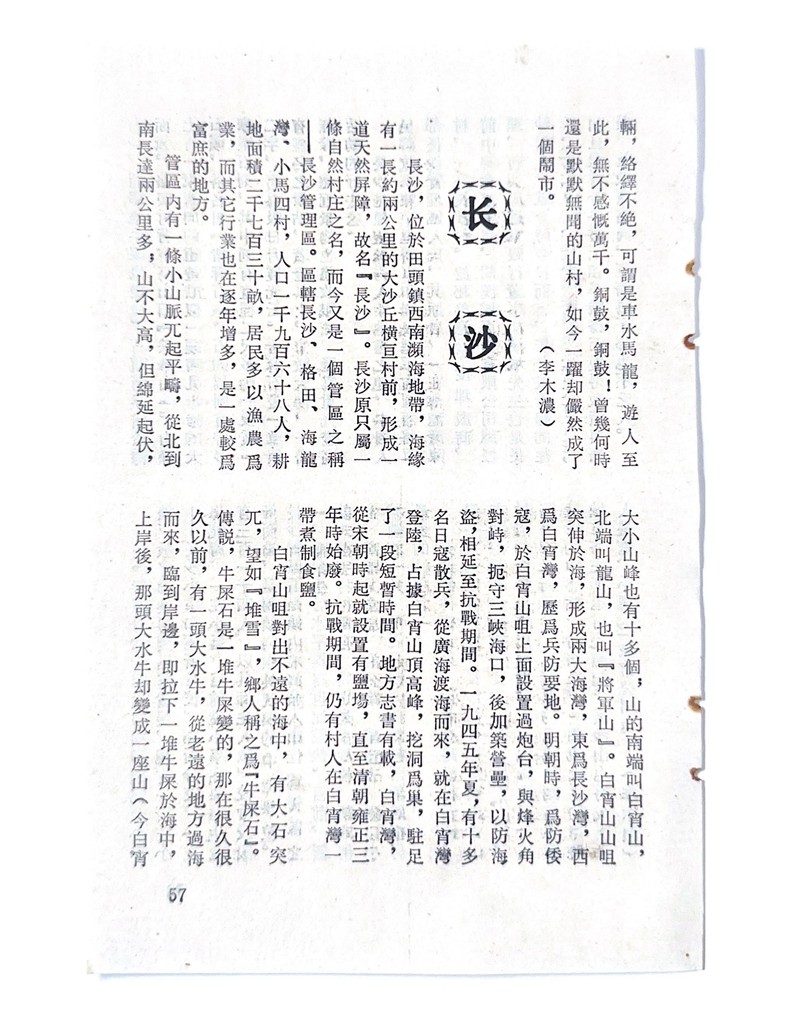 輛，絡繹不絶，可謂是車水馬龍，遊人至
此，無不感慨萬千。銅鼓，銅鼓！曾幾何時
還是默默無聞的山村，如今一躍却儼然成了
一個鬧市。
（李木濃）
长沙
長沙，位於田頭鎮西南瀕海地帶，海緣
有一長約兩公里的大沙丘橫亘村前，形成一
道天然屏障，故名『長沙』。長沙原只屬一
條自然村庄之名，而今又是一個管區之稱
——長沙管理區。區轄長沙、格田、海龍
灣、小馬四村，人口一千九百六十八人，耕
地面積二千七百三十畝，居民多以漁農爲
業，而其它行業也在逐年增多，是一處較爲
富庶的地方。
管區内有一條小山脈兀起平疇，從北到
南長達兩公里多，山不大高，但綿延起伏，
大小山峰也有十多個，山的南端叫白宵山，
北端叫龍山，也叫『將軍山』。白宵山山咀
突伸於海，形成兩大海灣，東爲長沙灣，西
爲白宵灣，歷爲兵防要地。明朝時，爲防倭
寇，於白宵山咀上面設置過炮台，與烽火角
對峙，扼守三峽海口，後加築營壘，以防海
盜，相延至抗戰期間。一九四五年夏，有十多
名日寇散兵，從廣海渡海而來，就在白宵灣
登陸，占據白宵山頂高峰，挖洞爲巢，駐足
了一段短暫時間。地方志書有載，白宵灣，
從宋朝時起就設置有鹽場，直至清朝雍正三
年時始廢。抗戰期間，仍有村人在白宵灣一
帶煮制食鹽。
白宵山咀對出不遠的海中，有大石突
兀，望如『堆雪』，鄉人稱之爲『牛屎石』。
傳説，牛屎石是一堆牛屎變的，那在很久很
久以前，有一頭大水牛，從老遠的地方過海
而來，臨到岸邊，即拉下一堆牛屎於海中，
上岸後，那頭大水牛却變成一座山（今白宵
57